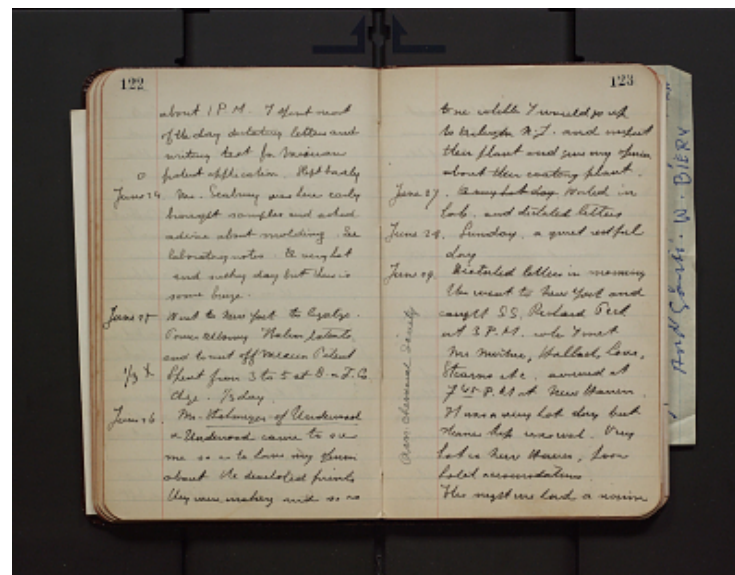 122
about 1 P.M. I spent most
of the day dictating letters and
writing text for Mexican
patent application. Slept badly
June 24. Mr. Seabury was here early
brought samples and asked
advice about molding. See
laboratory notes. A very hot
and sultry day but there is
some
June 25 Went to New York to legalize
Power Attorney Italian patents,
and to sent off Mexican Patent
1/3 Spent from 3 to 5 at B. & F. Co.
Chge. 1/3 day.
June 26. Mr. of Underwood
& Underwood came to see
me so as to have my opinion
about the developed prints
they were making and so as
123
to me while I would go up
to Arlington N.J. and inspect
their plant and give my opinion
about their coating plant.
June 27. A very hot day Worked in
lab. and dictated letters
June 28. Sunday, a quiet restful
day
June 29. Dictated letters in morning
then went to New York and
caught S.S. Richard Peck
at 3 P.M. where I met
Mr. Hallock, Love,
Stearns etc. arrived at
7 45 P.M at New Haven.
It was a very hot day but
trip was cool. Very
hot in New Haven, poor
hotel accomodations.
This night we had a
Am. Chemical Society
And W. BIERY